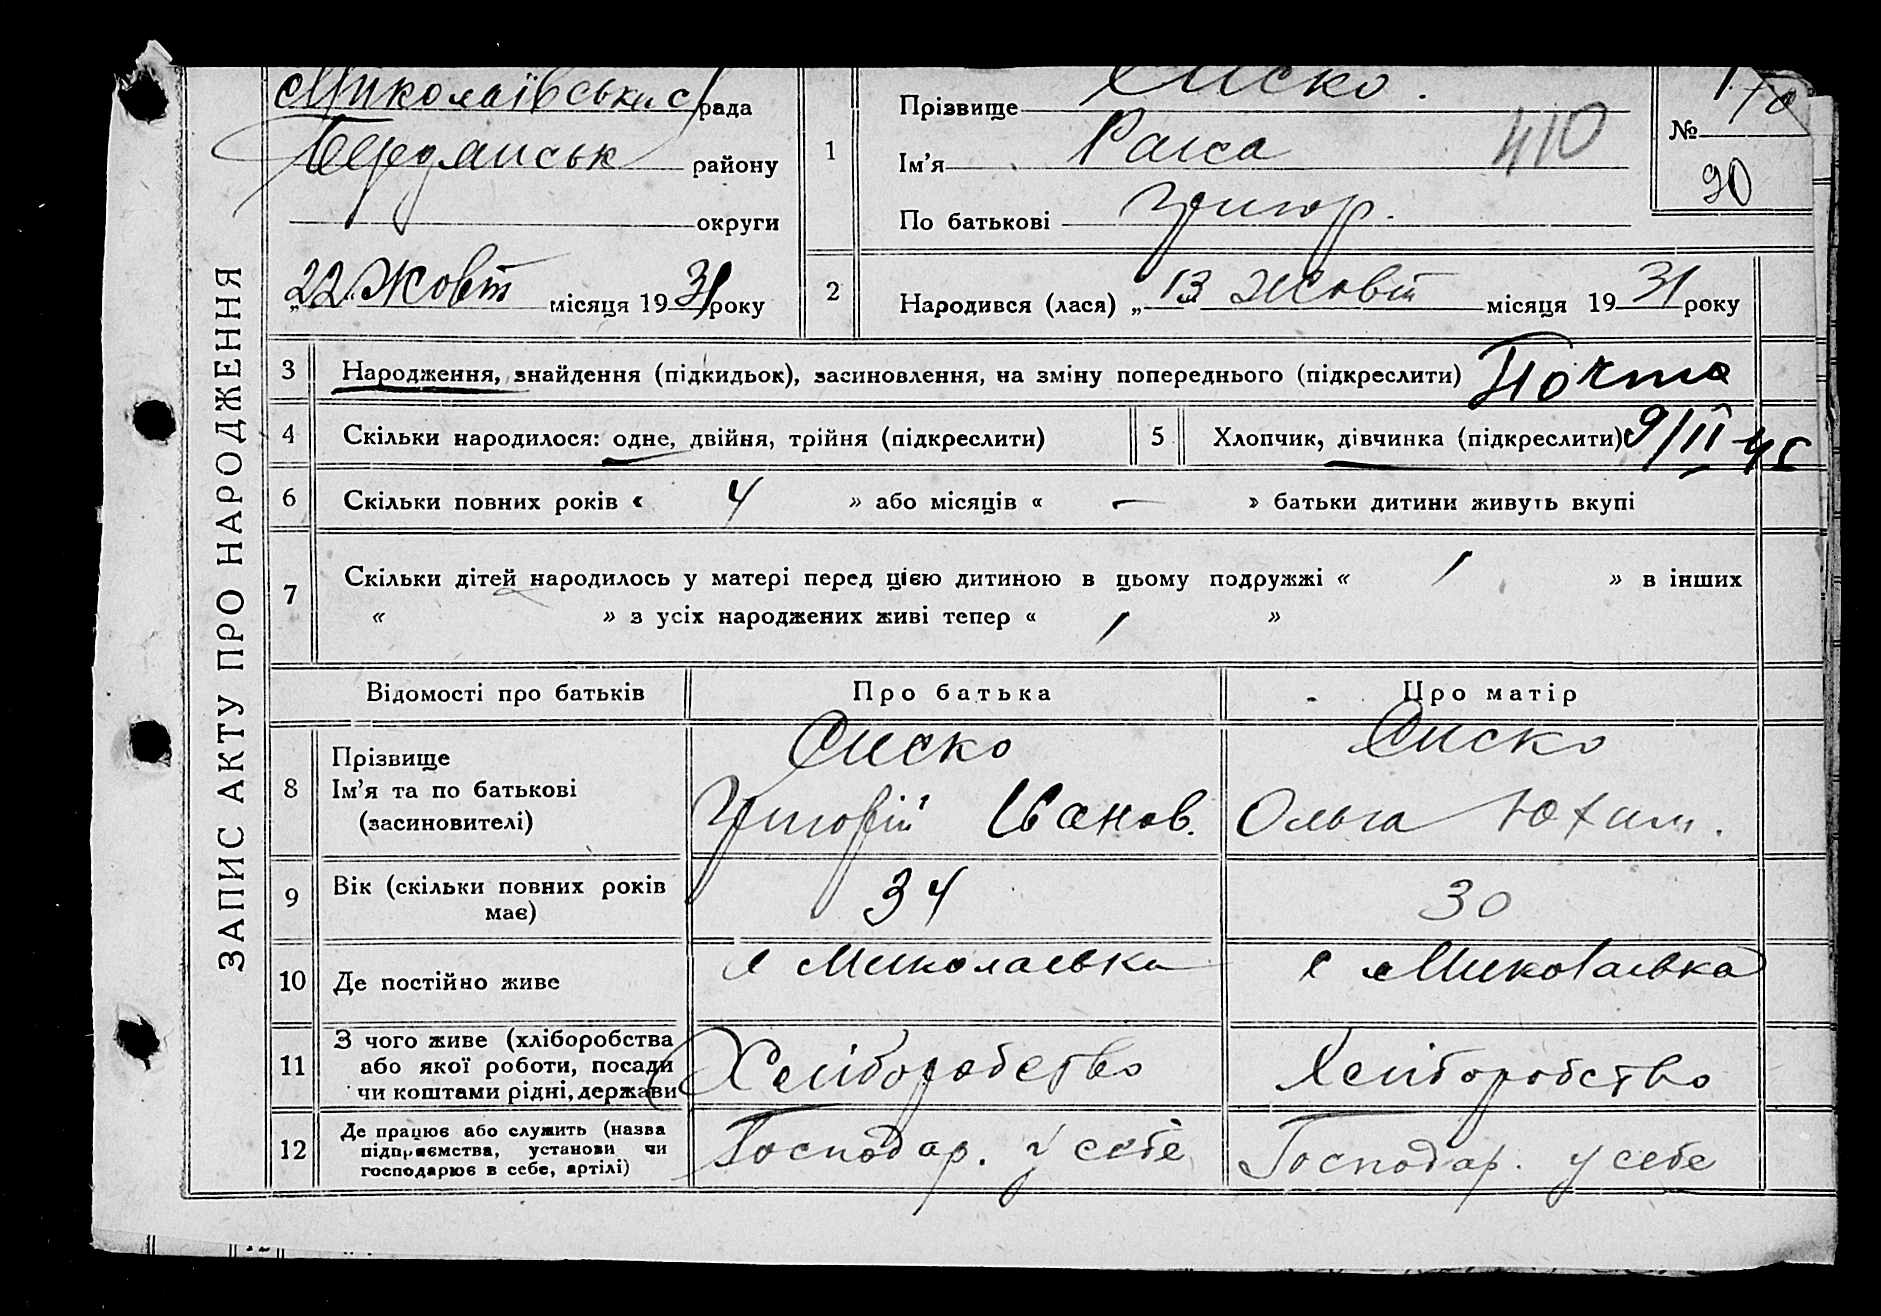 ЗАПИС АКТУ ПРО НАРОДЖЕННЯ
Миколаївська с/рада
Бердянськ району
округи
„22" Жовт місяця 1931 року
1
Прізвище Сиско.
Ім'я Раиса 410
По батькові Григор.
№ 170
90
2
Народився (лася) „13 Жовт місяця 1931 року
3 Народження, знайдення (підкидьок), засиновлення, на зміну попереднього (підкреслити) Почта
4 Скільки народилося: одне, двійня, трійня (підкреслити)
5 Хлопчик, дівчинка (підкреслити) 9/II 45
6 Скільки повних років « 4 » або місяців « — » батьки дитини живуть вкупі
7 Скільки дітей народилось у матері перед цією дитиною в цьому подружжі « 1 » в інших
« » з усіх народжених живі тепер « 1 »
Відомості про батьків Про батька Про матір
8 Прізвище
Ім'я та по батькові
(засиновителі)
Сиско
Григорій Іванов.
Сиско
Ольга Юхим.
9 Вік (скільки повних років
має)
34
30
10 Де постійно живе
с Миколаевка
с Миколаевка
11 З чого живе (хліборобства
або якої роботи, посади
чи коштами рідні, держави
Хліборобство
Хліборобство
12 Де працює або служить (назва
підприємства, установи чи
господарює в себе, артілі)
Господар. у себе
Господар. у себе